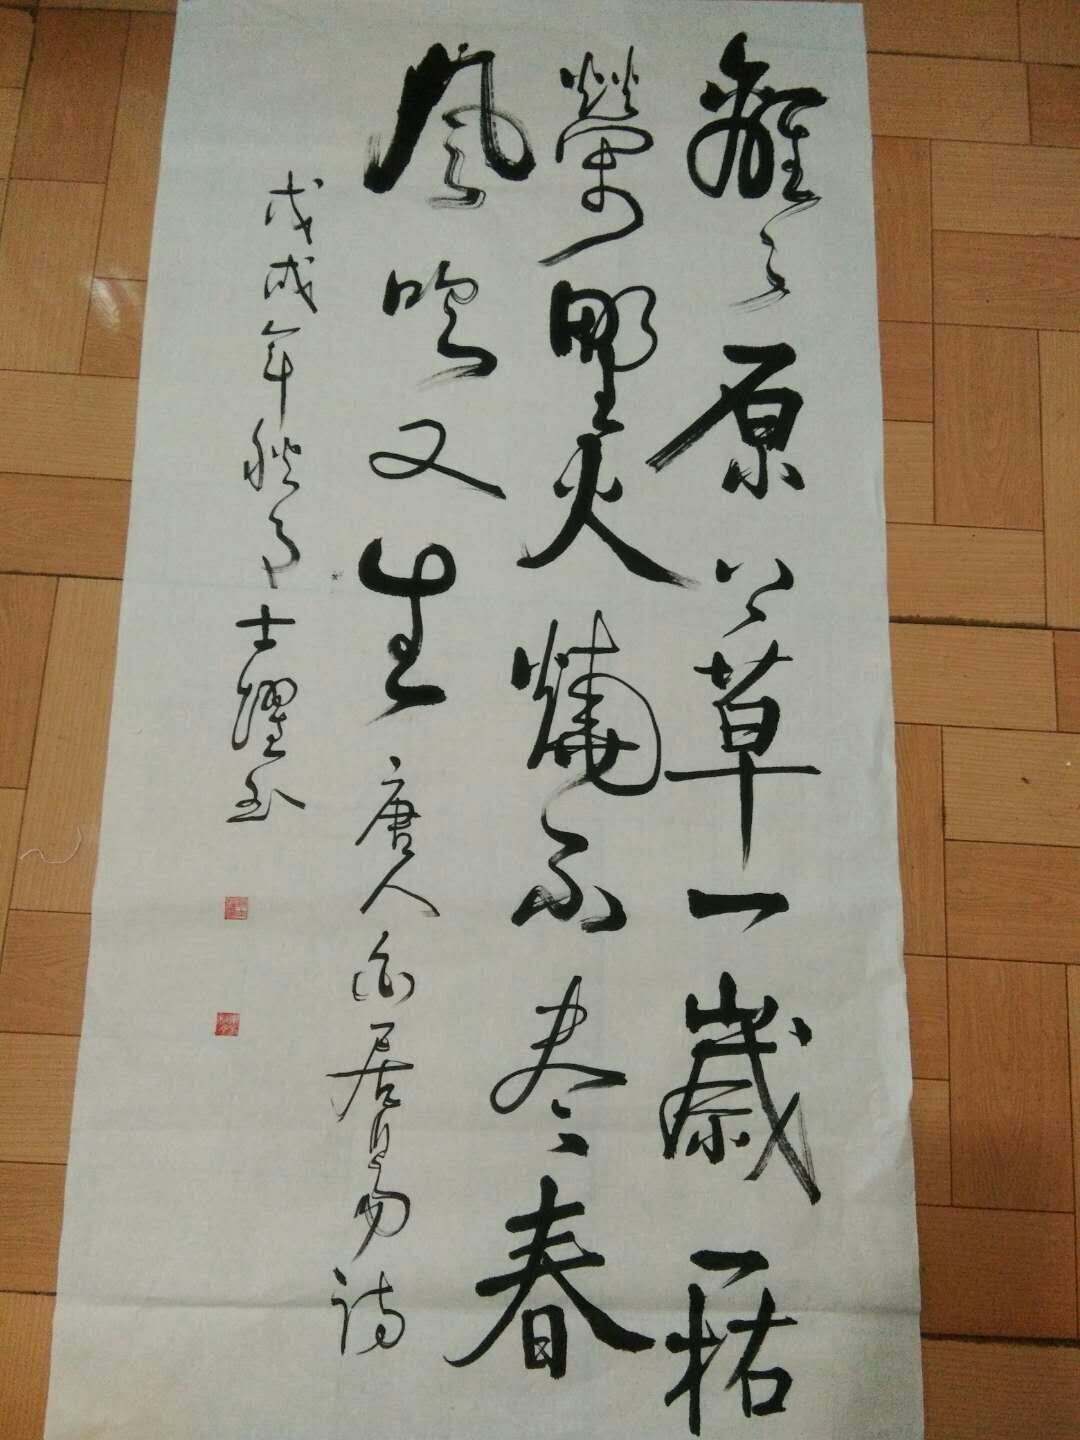 離々原上草一歲一枯
榮野火燒不尽春
風吹又生唐人白居易诗
戊戌年秋月士耀书